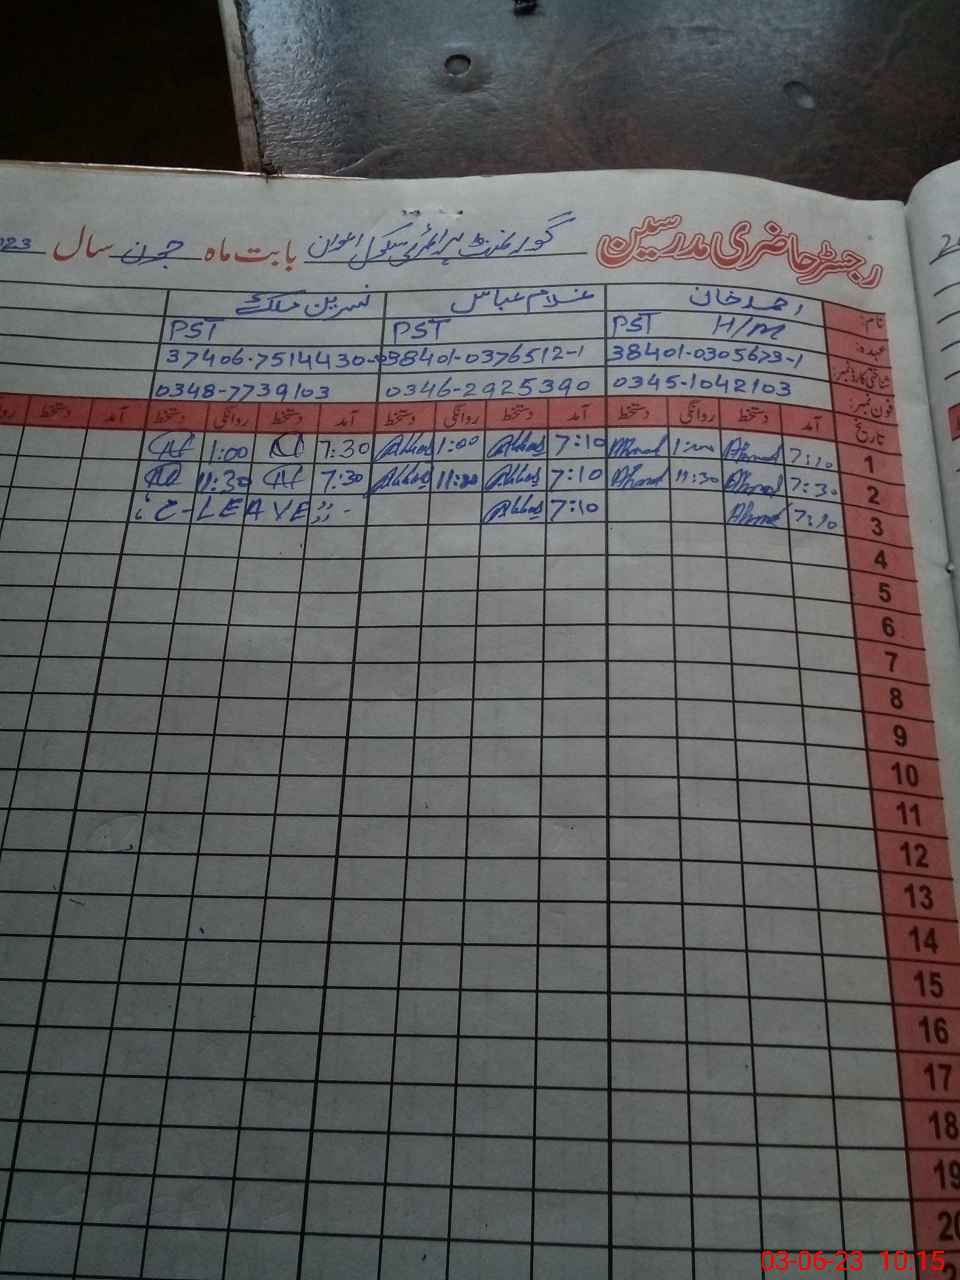 رجسٹر حاضری مدرسین گورنمنٹ پرائمری سکول اعوان بابت ماہ جون سال 023
نام: احمد خان غلام عباس نسرین ملک
عہدہ: PST H/M PST PST
شناختی کارڈ نمبر: 38401-0305673-1 38401-0376512-1 37406-7514430-
فون نمبر: 0345-1042103 0346-2925390 0348-7739103
تاریخ آمد دستخط روانگی دستخط آمد دستخط روانگی دستخط آمد دستخط روانگی دستخط آمد دستخط
1 7:10 Ahmad 1:00 Ahmad 7:10 Abbas 1:00 Abbas 7:30 1:00
2 7:30 Ahmad 11:30 Ahmad 7:10 Abbas 11:30 Abbas 7:30 11:30
3 7:10 Ahmad 7:10 Abbas C-LEAVE
4
5
6
7
8
9
10
11
12
13
14
15
16
17
18
19
20
03-06-23 10:15